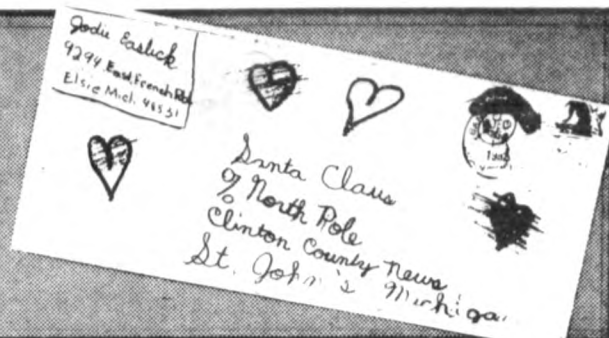 Jodie Eastick
9294 East French Rd.
Elsie Mich. 48831
Santa Claus
% North Pole
Clinton County News
St. John's Michigan